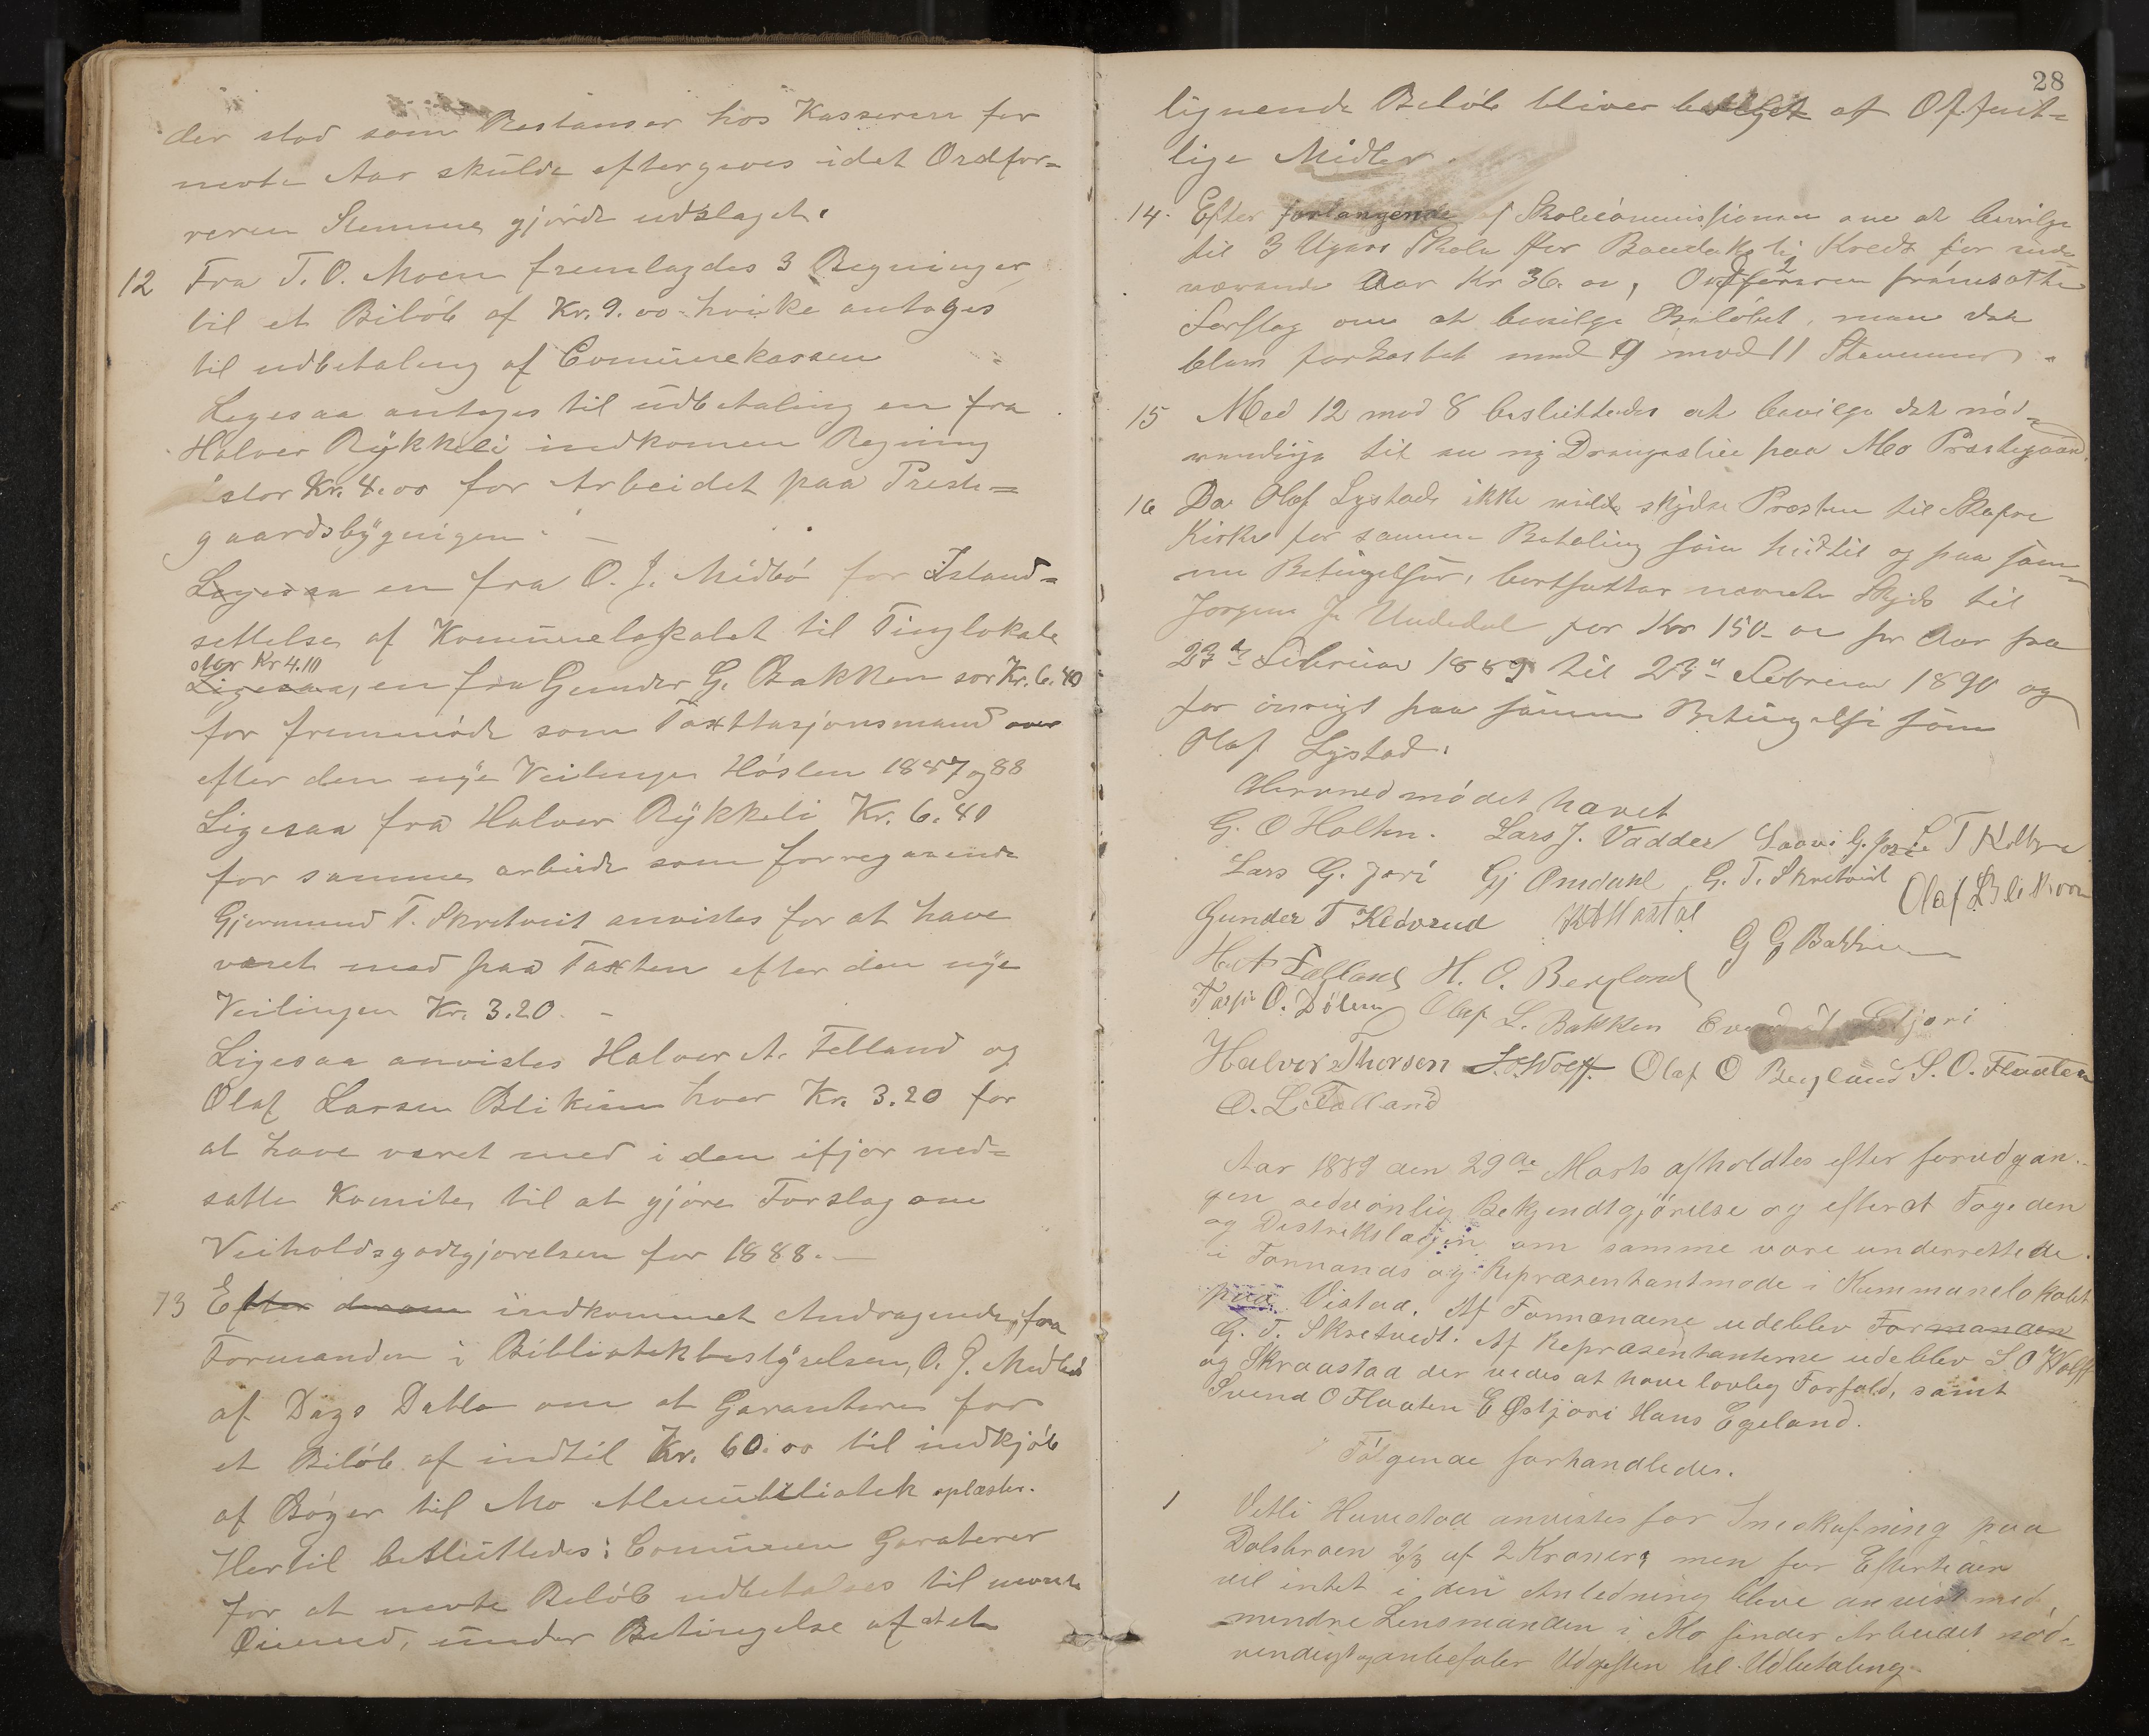 der stod som Restanser hos Kasseren for
nevte Aar skulde eftergives idet Ordfor-
reren Stemme gjorde udslaget.
12 Fra T. O. Moen fremlagdes 3 Regninger
til et Beløb af Kr. 9.00 hvilke antoges
til udbetaling af Comunekassen
Ligesaa antoges til udbetaling en fra
Halvor Rykkeli indkomen Regning
stor Kr. 4.00 for Arbeidet paa Preste-
gaardsbygnigen. –
Ligesaa en fra O. J. Midbö for Istand-
settelse af Komunelokalet til Tinglokale
stor Kr 4.10
Ligesaa, en fra Gunder G. Bakken sor Kr. 6.40
for fremmöde som Taxttasjonsmand over
efter den nye Veilinge Hösten 1887 og 88
Ligesaa fra Halvor Rykkeli Kr. 6.40
for samme arbeide som forregaaende
Gjermund T. Skretveit anvistes for at have
været med paa Taxten efter den nye
Veilingen Kr. 3.20 –
Ligesaa anvistes Halvor A. Felland og
Olaf Larsen Blikum hver Kr. 3.20 for
at have været med i den ifjor ned-
satte Komite til at gjöre Forslag om
Veiholdsgodtgjörelsen for 1888. –
13 Efter derom indkommet Andragende fra
Formanden i Bibliotekbestyrelsen, O. J. Midbö
af Dags Datto om at Garantere for
et Belöb af indtil Kr. 60.00 til indkjöb
af Böger til Mo Almubibliotek oplæstes.
Hertil besluttedes: Comunen Garaterer
for at nevte Belöb udbetales til nevnte
Öiemed, under Betingelse af at et
28
lignende Belöb bliver bevilget af Offent-
lige Midler.
14. Efter forlangende af Skolecommissionen om at bevilge
til 3 Ugers Skole for Bandaksli Kreds for inde-
værende Aar Kr 36.00, Ordföreren fremsatte
Forslag om at bevilge Belöbet, men det
blev forkastet med 9 mod 11 Stemmer.
15 Med 12 mod 8 besluttedes at bevilge det nöd-
vendige til en ny Drengestue paa Mo Prestegaard.
16 Da Olaf Lystad ikke vilde skydse Præsten til Skafsaa
Kirke for samme Betaling som hidtil og paa sam-
me Betingelser, bortsattes nævnte Skyds til
Jorgen J. Undedal for Kr 150.00 pr Aar fra
23de Februar 1889 til 23de Februar 1890 og
for övrigt paa samme Betingelse som
Olaf Lystad.
Hermed mödet hævet
G. O Holten. Lars J. Vadder Saavi G. Jore L T Kolbræ
Lars G. Jori Gj Omdahl G. T. Skretveit
Olaf L Blikom
Gunder T Kleivrud
G G Bakken
H. A Felland H. O. Berglund
Tarje O. Dölen Olaf L. Bakken Østjori
Halvor Thorsen S. O. Wolff. Olaf O Berglund S. O. Flaaten
O. L. Felland
Aar 1889 den 29de Marts afholdtes efter forudgan-
gen sedvonlig Bekjendtgjörelse og efterat Fogeden
og Distrikslægen om samme vare underrettede
i Formands og Repræsentantmøde i Kommunelokalet
paa Vistad. Af Formændene udeblev Formanden
G. T. Skretvedt. Af Repræsentanterne udeblev S. O Wolff
og Skraastad der vides at have lovleg Forfald, samt
Svend O Flaaten E Østjori Hans Egeland.
Fölgende forhandledes.
1 Vetli Huvestad anvistes for Sneskufning paa
Dalsbroen 2/3 af 2 Kroner, men for Eftertiden
vil intet i den Anledning bleve anvist med
mindre Lensmanden i Mo finder Arbeidet nöd-
vendigt og anbefaler Udgiften til Udbetaling